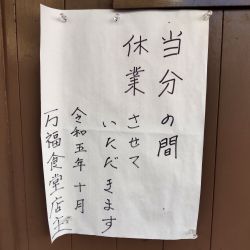 当分の間
休業
させて
いただきます
令和五年十月
万福食堂店主